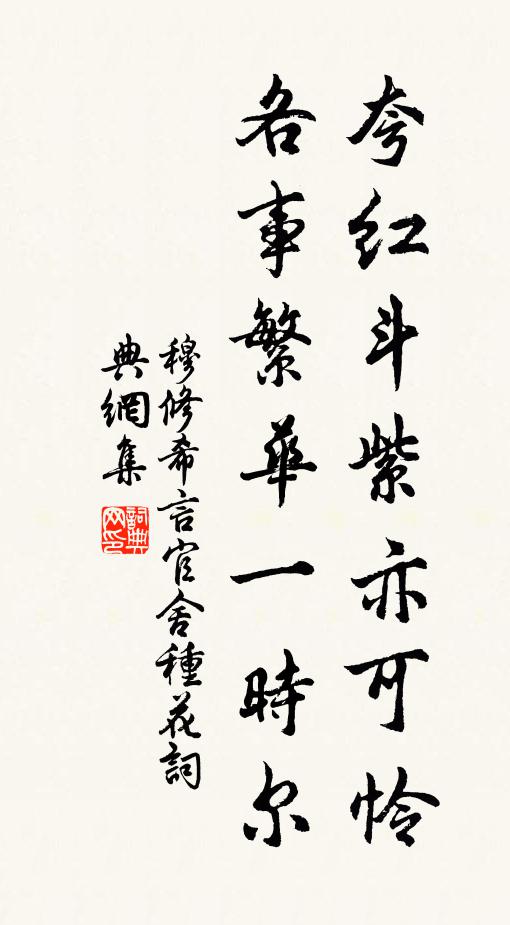 夸红斗紫亦可怜
各事繁华一時尔
穆修希言官舍種花詞
典網集
詞典网印